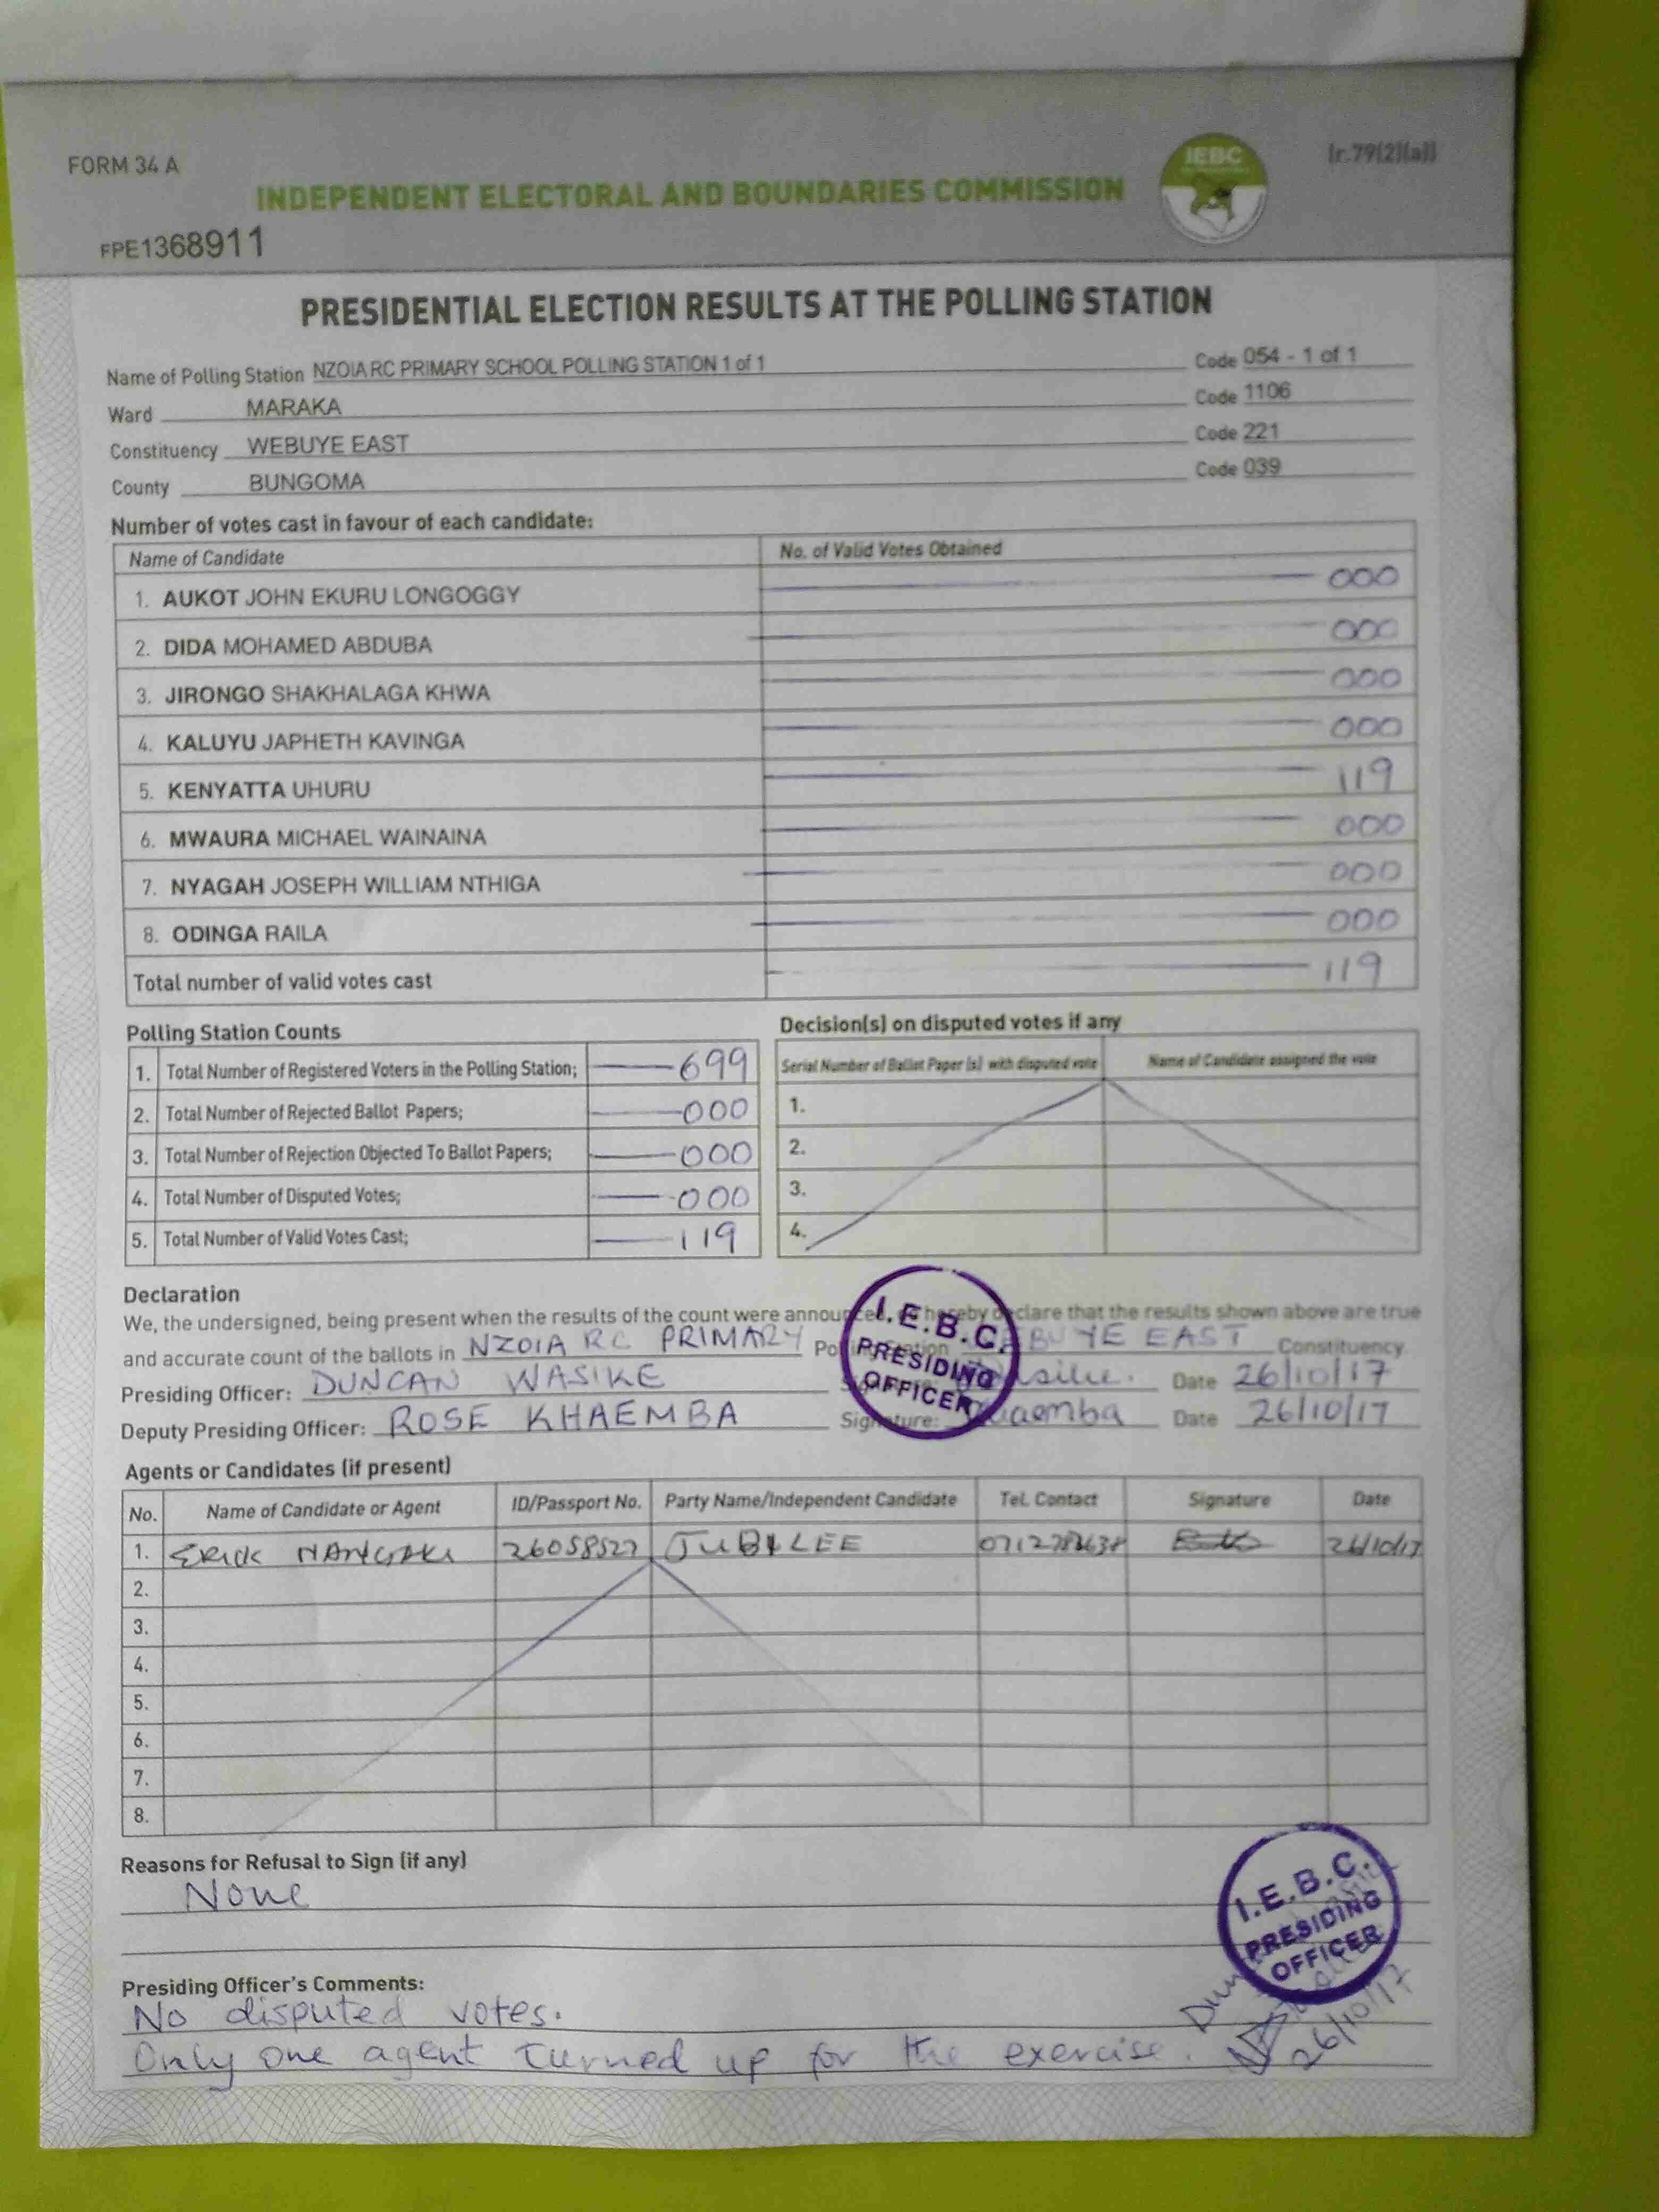 FORM 34 A
IEBC
(r.79(2)(a))
INDEPENDENT ELECTORAL AND BOUNDARIES COMMISSION
FPE1368911
PRESIDENTIAL ELECTION RESULTS AT THE POLLING STATION
Name of Polling Station NZOIA RC PRIMARY SCHOOL POLLING STATION 1 of 1 Code 054 - 1 of 1
Ward MARAKA Code 1106
Constituency WEBUYE EAST Code 221
County BUNGOMA Code 039
Number of votes cast in favour of each candidate:
Name of Candidate No. of Valid Votes Obtained
1. AUKOT JOHN EKURU LONGOGGY 000
2. DIDA MOHAMED ABDUBA 000
3. JIRONGO SHAKHALAGA KHWA 000
4. KALUYU JAPHETH KAVINGA 000
5. KENYATTA UHURU 119
6. MWAURA MICHAEL WAINAINA 000
7. NYAGAH JOSEPH WILLIAM NTHIGA 000
8. ODINGA RAILA 000
Total number of valid votes cast 119
Polling Station Counts
1. Total Number of Registered Voters in the Polling Station; 699
2. Total Number of Rejected Ballot Papers; 000
3. Total Number of Rejection Objected To Ballot Papers; 000
4. Total Number of Disputed Votes; 000
5. Total Number of Valid Votes Cast; 119
Decision(s) on disputed votes if any
Serial Number of Ballot Paper (s) with disputed vote Name of Candidate assigned the vote
1.
2.
3.
4.
Declaration
We, the undersigned, being present when the results of the count were announced, do hereby declare that the results shown above are true
and accurate count of the ballots in NZOIA RC PRIMARY Polling Station WEBUYE EAST Constituency
Presiding Officer: DUNCAN WASIKE Date 26/10/17
Deputy Presiding Officer: ROSE KHAEMBA Signature: Khaemba Date 26/10/17
I.E.B.C.
PRESIDING
OFFICER
Agents or Candidates (if present)
No. Name of Candidate or Agent ID/Passport No. Party Name/Independent Candidate Tel. Contact Signature Date
1. ERICK 26058527 JUBILEE 26/10/17
2.
3.
4.
5.
6.
7.
8.
Reasons for Refusal to Sign (if any)
None
I.E.B.C.
PRESIDING
OFFICER
26/10/17
Presiding Officer's Comments:
No disputed votes.
Only one agent turned up for the exercise.